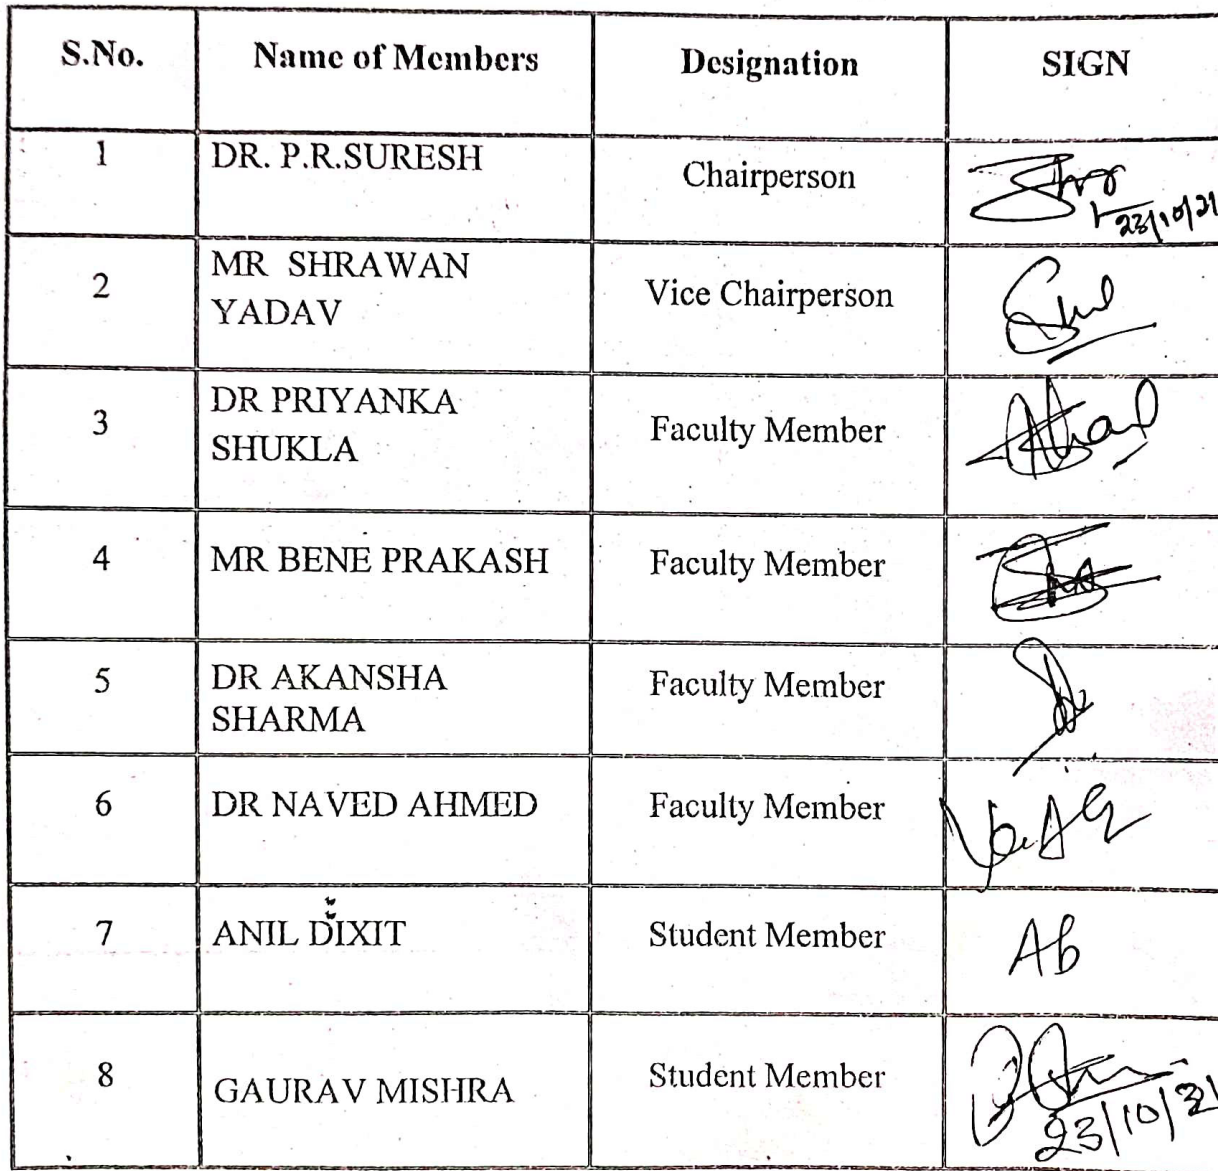 S.No. Name of Members Designation SIGN
1 DR. P.R.SURESH Chairperson
23/10/21
2 MR SHRAWAN Vice Chairperson
YADAV
3 DR PRIYANKA Faculty Member
SHUKLA
4 MR BENE PRAKASH Faculty Member
5 DR AKANSHA Faculty Member
SHARMA
6 DR NAVED AHMED Faculty Member
7 ANIL DIXIT Student Member Ab
8 GAURAV MISHRA Student Member
23/10/21